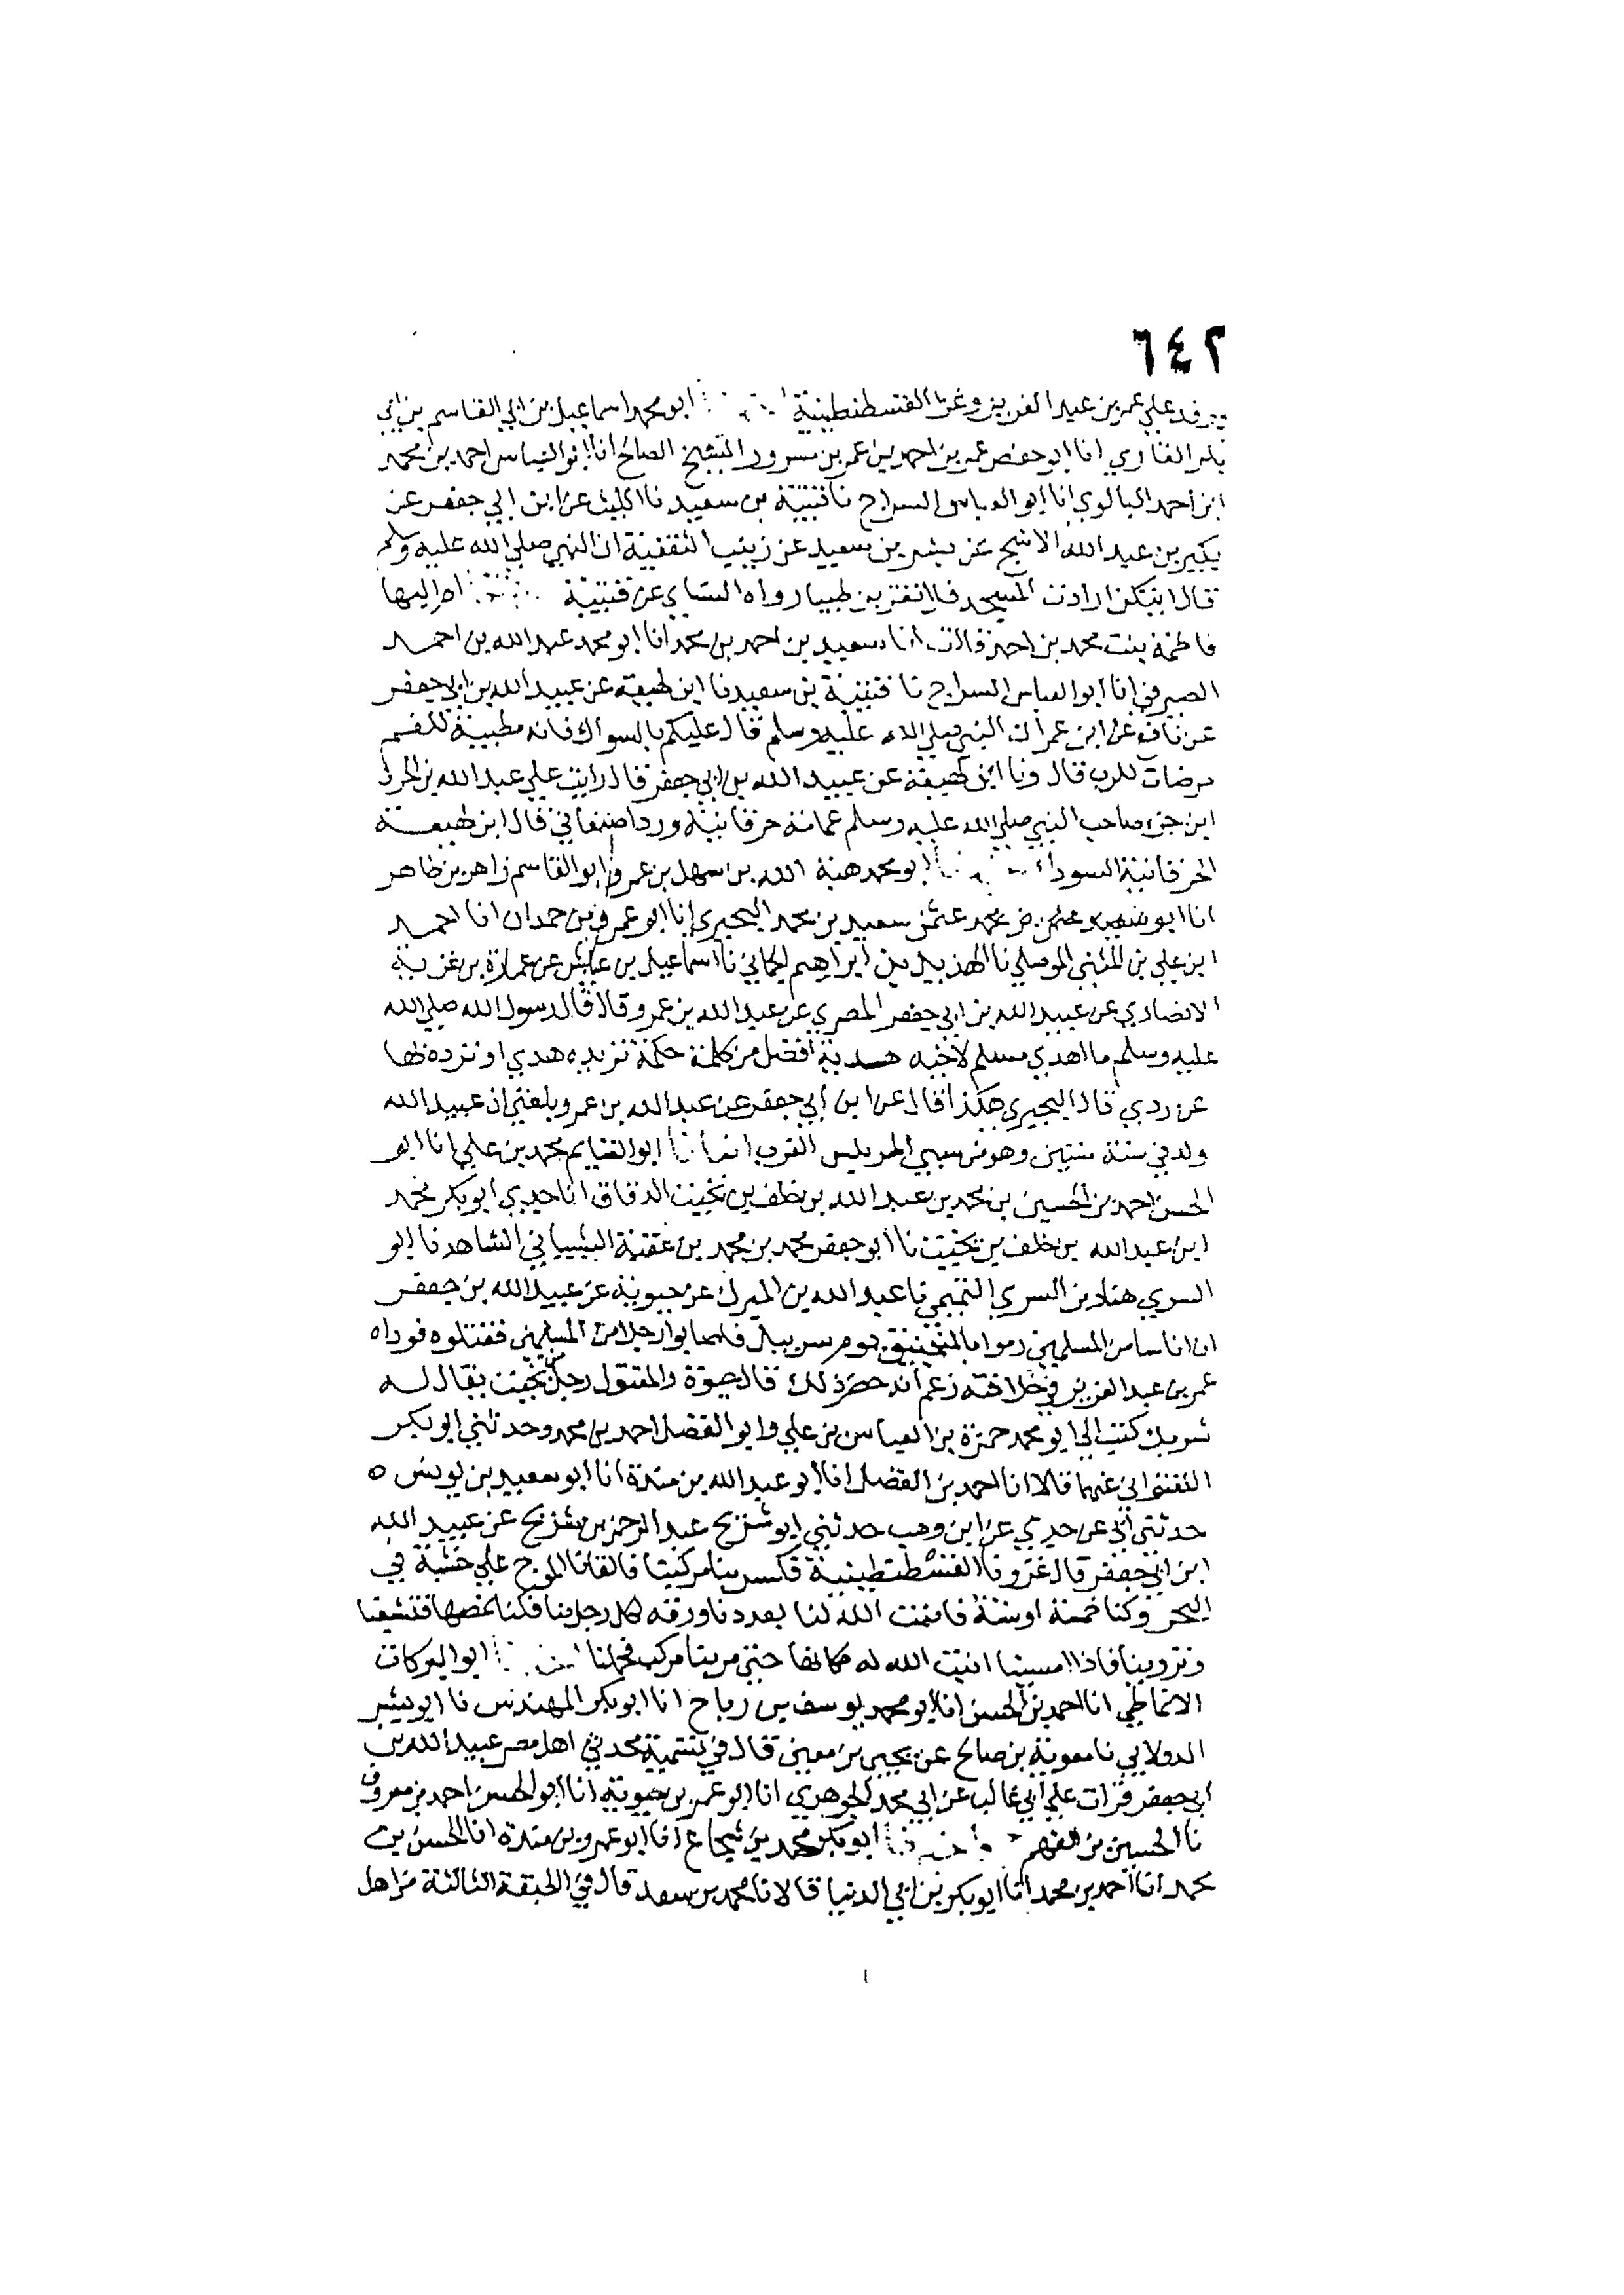 ٦٤٢
ووفد علي عمر بن عبد العزيز وغزا القسطنطينية ابو محمد اسماعيل بن ابي القاسم بن ابي
بكر القاري انا ابو حفص عمر بن احمد بن عمر بن مسرور الشيخ الصالح انا ابو العباس احمد بن محمد
ابن احمد البالوي انا ابو العباس السراج نا قتيبة بن سعيد نا الليث عن ابن ابي جعفر عن
بكير بن عبد الله الاشج عن بسر بن سعيد عن زينب الثقفية ان النبي صلي الله عليه وسلم
قال ايتكن ارادت المسجد فلا تقربن طيبا رواه النساي عن قتيبة
فاطمة بنت محمد بن احمد قالت انا سعيد بن احمد بن محمد انا ابو محمد عبد الله بن احمد
الصيرفي انا ابو العباس السراج نا قتيبة بن سعيد نا ابن لهيعة عن عبيد الله بن ابي جعفر
عن نافع عن ابن عمر ان النبي صلي الله عليه وسلم قال عليكم بالسواك فانه مطيبة للفم
مرضات للرب قال ونا ابن لهيعة عن عبيد الله بن ابي جعفر قال رايت علي عبد الله بن الحرث
ابن جزء صاحب النبي صلي الله عليه وسلم عمامة حرقانية وردا صنعاني قال ابن لهيعة
الحرقانية السوداء ابو محمد هبة الله بن سهل بن عمر وابو القاسم زاهر بن طاهر
انا ابو سعيد محمد سعيد بن محمد البحيري انا ابو عمرو بن حمدان انا احمد
ابن علي بن المثني الموصلي نا الهذيل بن ابراهيم الحماني نا اسماعيل بن عياش عن عمارة بن غزية
الانصاري عن عبيد الله بن ابي جعفر المصري عن عبد الله بن عمرو قال قال رسول الله صلي الله
عليه وسلم ما اهدي مسلم لاخيه هدية افضل من كلمة حكمة تزيده هدي او ترده بها
عن ردي قال البحيري هكذا قال عن ابن ابي جعفر عن عبد الله بن عمرو بلغني ان عبيد الله
ولد في سنة ستين وهو من سبي اطرابلس الغرب انبانا ابو الغنايم محمد بن علي انا ابو
الحسن احمد بن الحسين بن محمد بن عبد الله بن خلف بن بخيت الدقاق انا جدي ابو بكر محمد
ابن عبد الله بن خلف بن بخيت نا ابو جعفر محمد بن محمد بن عقبة الشيباني الشاهد نا ابو
السري هناد بن السري التميمي نا عبد الله بن المبرك عن حيوية عن عبيد الله بن جعفر
ان اناسا من المسلمين رموا بالمنجنيق يوم فاصابوا رجلا من المسلمين فقتلوه فوداه
عمر بن عبد العزيز في خلافته زعم انه حضر ذلك قال حيوة والمقتول رجل من تجيب يقال له
شريك كتب الي ابو محمد حمزة بن العباس بن علي وابو الفضل احمد بن محمد وحدثني ابو بكر
اللفتواني عنهما قالا انا احمد بن الفضل انا ابو عبد الله بن مندة انا ابو سعيد بن يونس ه
حدثني ابي عن جدي عن ابن وهب حدثني ابو شريح عبد الرحمن بن شريح عن عبيد الله
ابن ابي جعفر قال غزونا القسطنطينية فكسر بنا مركبنا فالقانا الموج علي خشبة في
البحر وكنا خمسة او ستة فانبت الله لنا بعددنا ورقة لكل رجل منا فكنا نمصها فتشبعنا
وتروينا فاذا امسينا انبت الله له مكانها حتي مر بنا مركب فحملنا ابو البركات
الانماطي انا احمد بن الحسن انا ابو محمد يوسف بن رباح انا ابو بكر المهندس نا ابو بشر
الدولابي نا معوية بن صالح عن يحيى بن معين قال في تسمية محدثي اهل مصر عبيد الله بن
ابي جعفر قرات علي ابي غالب عن ابي محمد الجوهري انا ابو عمر بن حيوية انا ابو الحسن احمد بن معروف
نا الحسين بن الفهم ابو بكر محمد بن شجاع انا ابو عمرو بن مندة انا الحسن بن
محمد انا احمد بن محمد انا ابو بكر بن ابي الدنيا قالا نا محمد بن سعد قال في الطبقة الثالثة من اهل